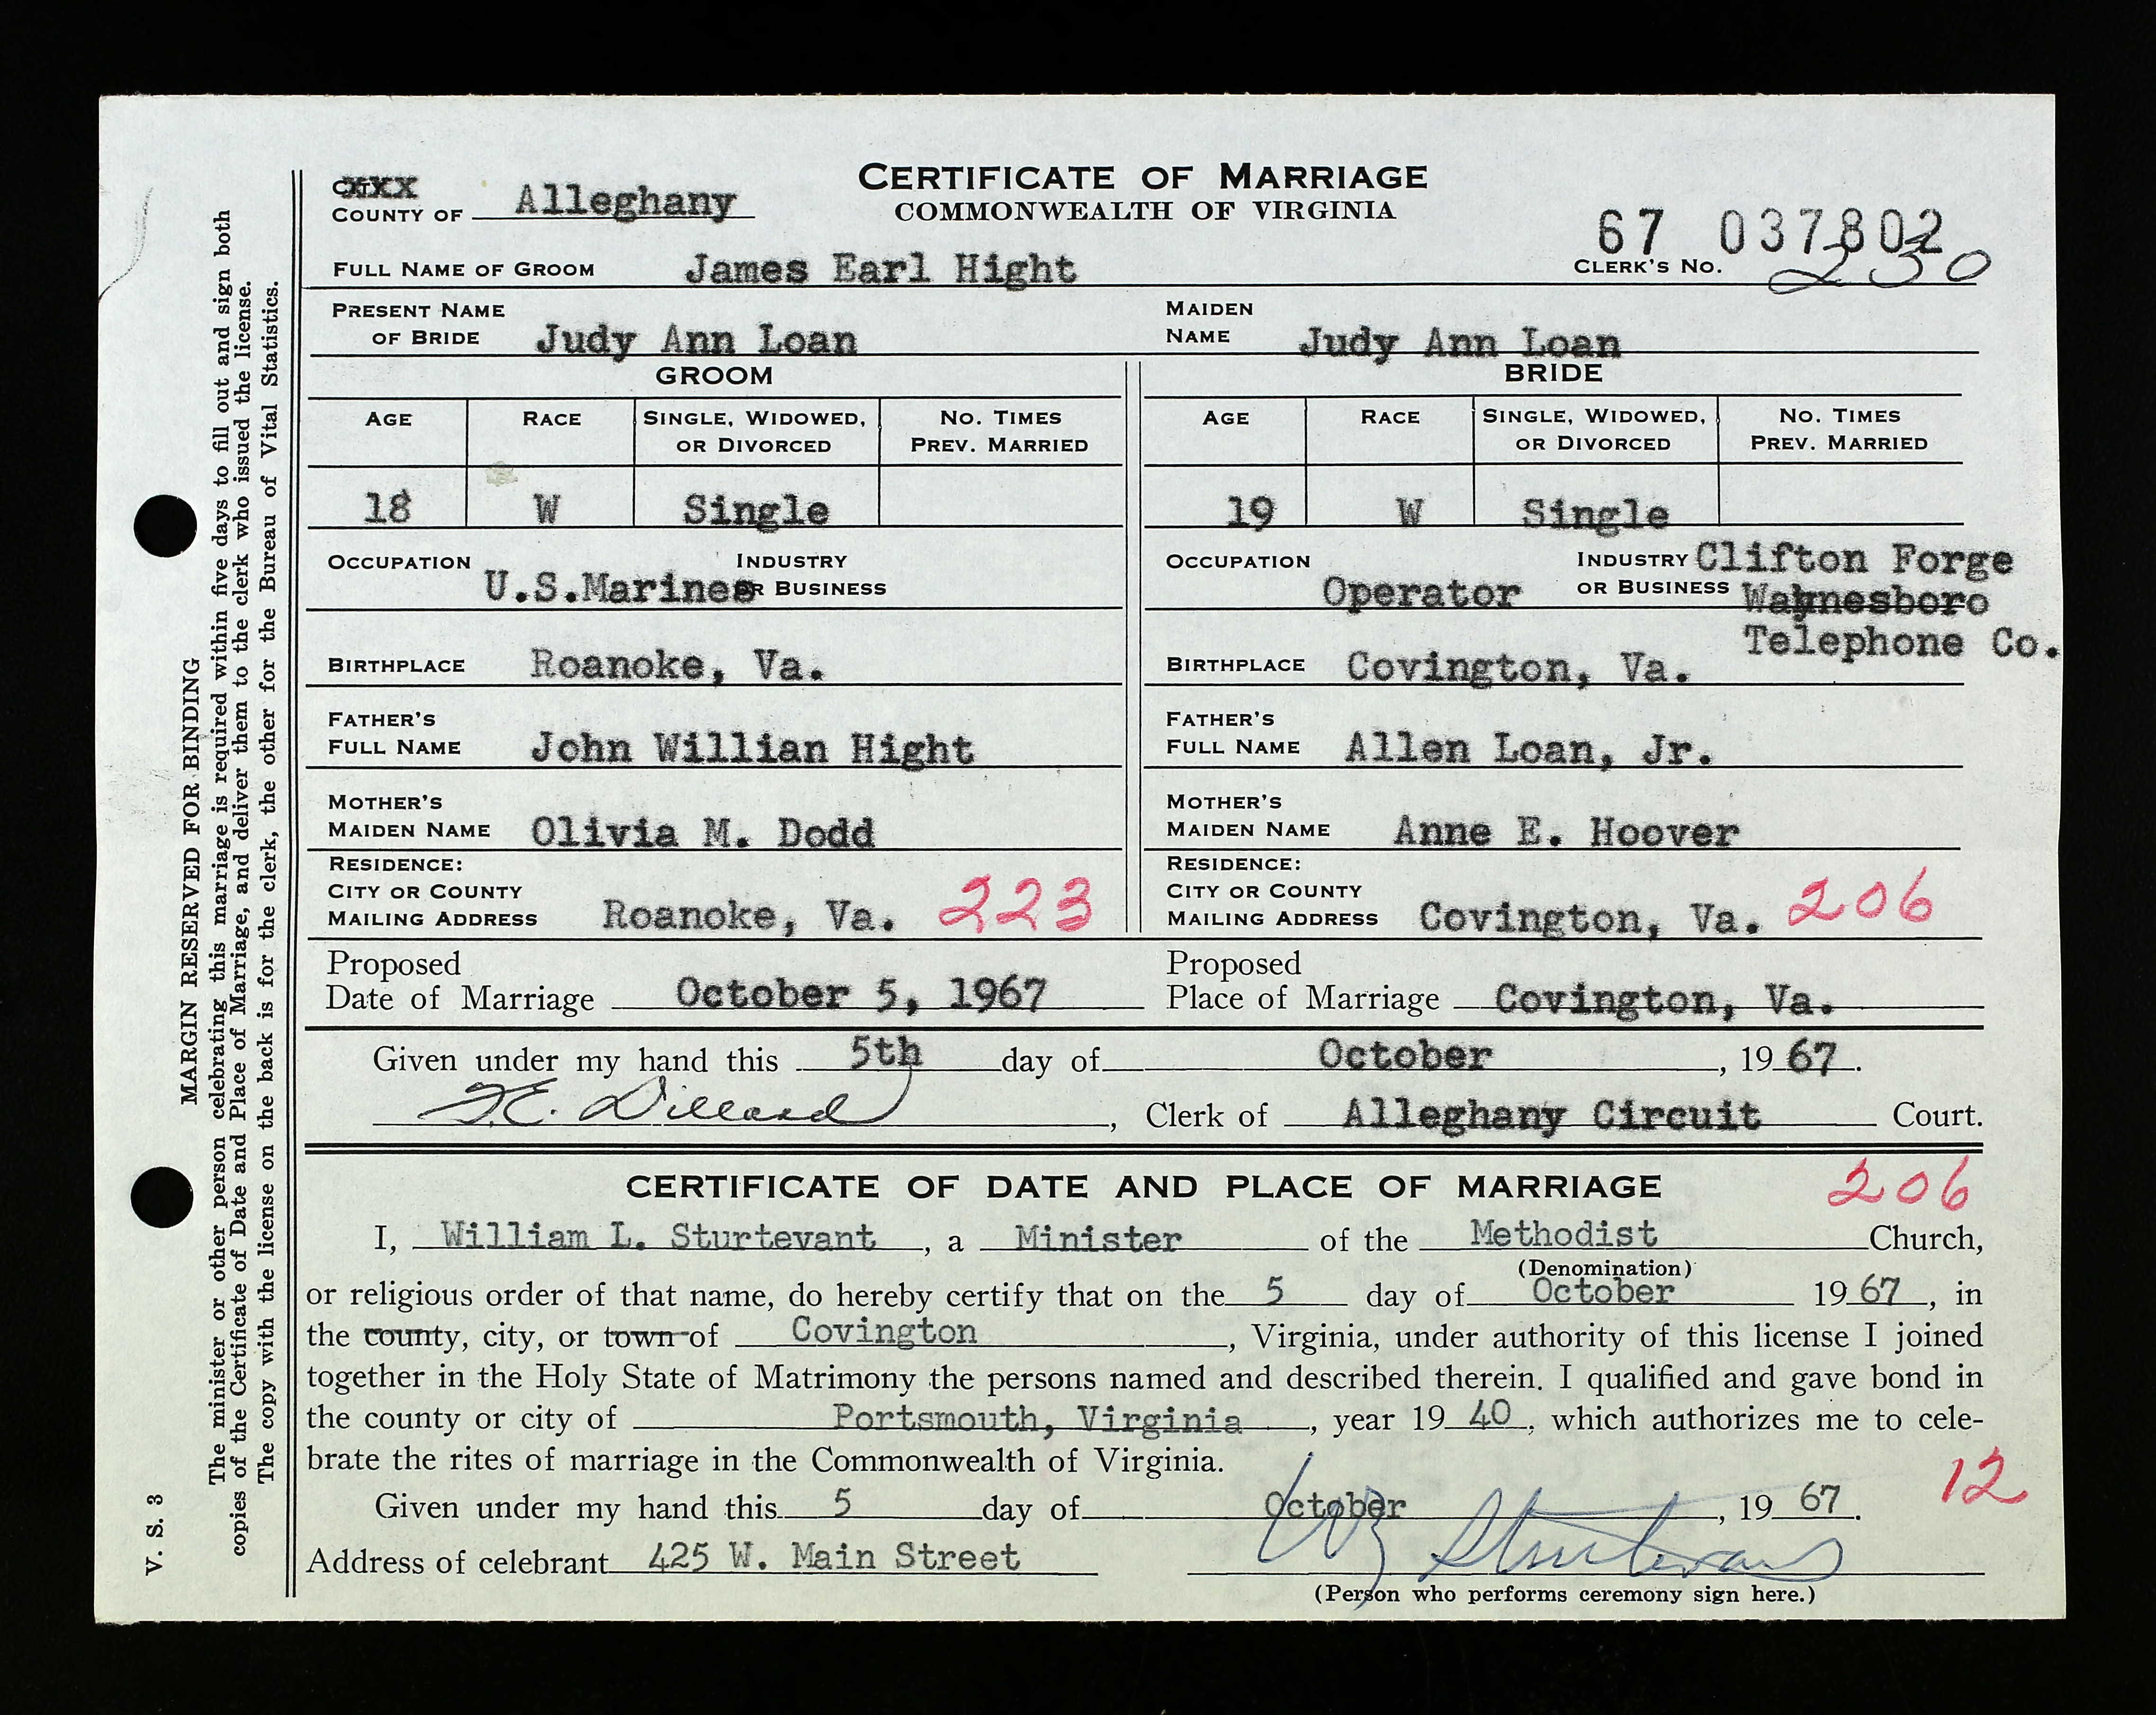 CERTIFICATE OF MARRIAGE
COMMONWEALTH OF VIRGINIA
COUNTY OF Alleghany
67 037802
CLERK'S NO. 230
FULL NAME OF GROOM James Earl Hight
PRESENT NAME OF BRIDE Judy Ann Loan
MAIDEN NAME Judy Ann Loan
GROOM
AGE RACE SINGLE, WIDOWED, OR DIVORCED NO. TIMES PREV. MARRIED
18 W Single
OCCUPATION U.S.Marines INDUSTRY OR BUSINESS
BIRTHPLACE Roanoke, Va.
FATHER'S FULL NAME John Willian Hight
MOTHER'S MAIDEN NAME Olivia M. Dodd
RESIDENCE:
CITY OR COUNTY
MAILING ADDRESS Roanoke, Va. 223
BRIDE
AGE RACE SINGLE, WIDOWED, OR DIVORCED NO. TIMES PREV. MARRIED
19 W Single
OCCUPATION Operator INDUSTRY OR BUSINESS Clifton Forge
Waynesboro
Telephone Co.
BIRTHPLACE Covington, Va.
FATHER'S FULL NAME Allen Loan, Jr.
MOTHER'S MAIDEN NAME Anne E. Hoover
RESIDENCE:
CITY OR COUNTY
MAILING ADDRESS Covington, Va. 206
Proposed Date of Marriage October 5, 1967
Proposed Place of Marriage Covington, Va.
Given under my hand this 5th day of October, 1967.
Dillard, Clerk of Alleghany Circuit Court.
CERTIFICATE OF DATE AND PLACE OF MARRIAGE
206
I, William L. Sturtevant, a Minister of the Methodist Church,
(Denomination)
or religious order of that name, do hereby certify that on the 5 day of October 1967, in
the county, city, or town of Covington, Virginia, under authority of this license I joined
together in the Holy State of Matrimony the persons named and described therein. I qualified and gave bond in
the county or city of Portsmouth, Virginia, year 1940, which authorizes me to cele-
brate the rites of marriage in the Commonwealth of Virginia.
12
Given under my hand this 5 day of October, 1967.
Address of celebrant 425 W. Main Street
Sturtevant
(Person who performs ceremony sign here.)
MARGIN RESERVED FOR BINDING
The minister or other person celebrating this marriage is required within five days to fill out and sign both
copies of the Certificate of Date and Place of Marriage, and deliver them to the clerk who issued the license.
The copy with the license on the back is for the clerk, the other for the Bureau of Vital Statistics.
V. S. 3